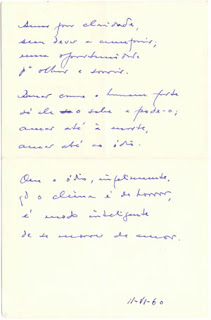 Amar por claridade,
sem dever a cumprir;
uma oportunidade
p'ra olhar e sorrir.
Amar como o homem forte
só ele o sabe e pode-o;
amar até à morte,
amar até ao ódio.
Que o ódio, infelizmente,
qd o clima é de horror,
é modo inteligente
de se morrer de amor.
11-VI-60